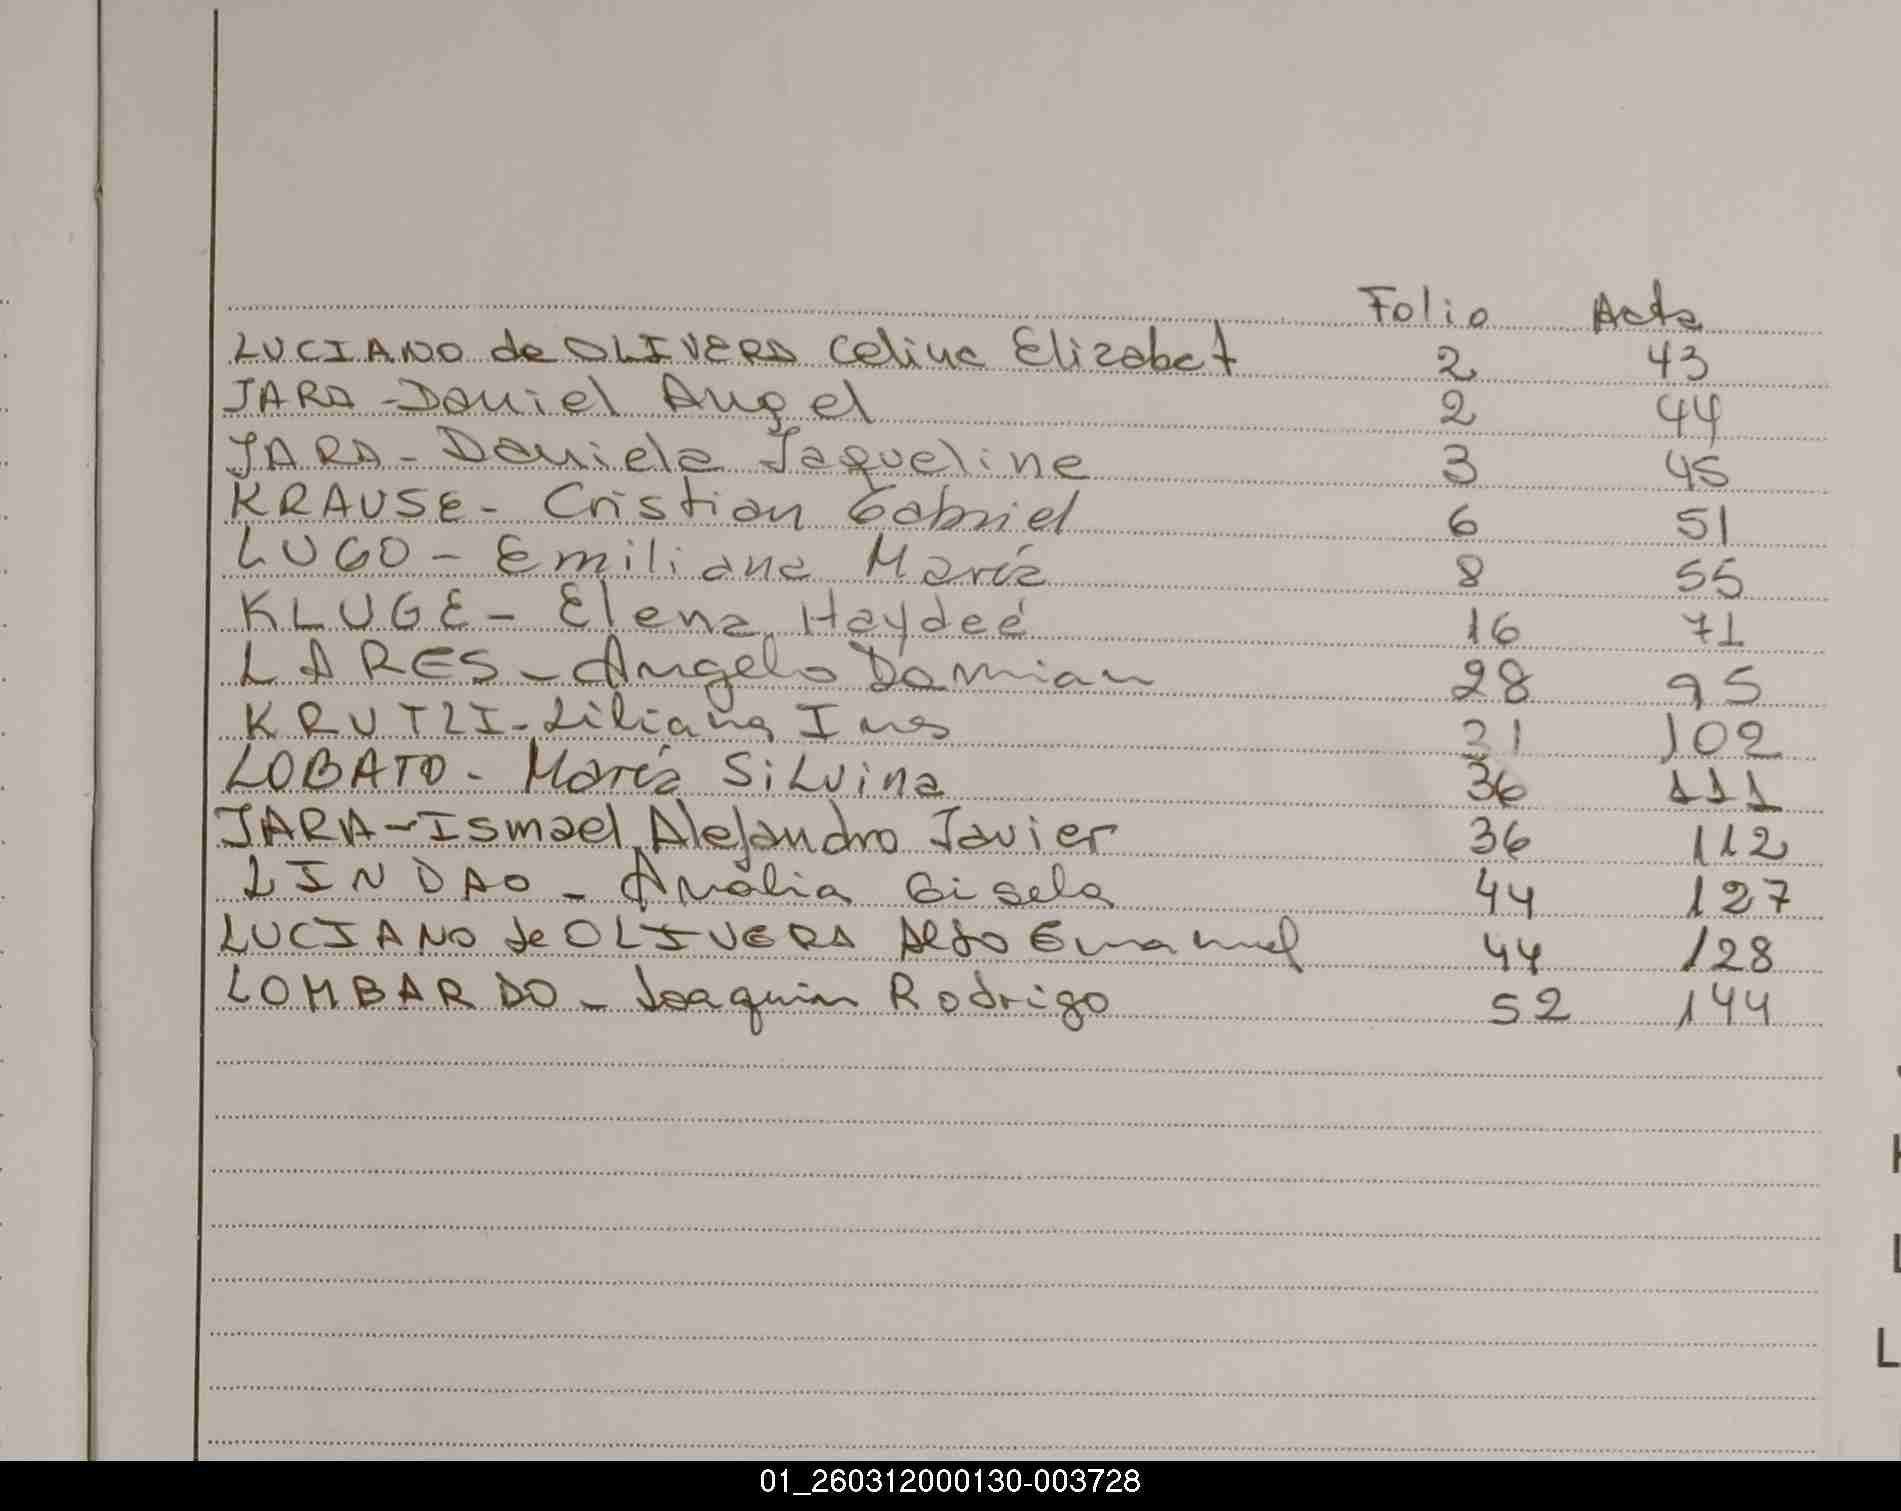 Folio Acta
LUCIANO de OLIVERA Celina Elizabet 2 43
JARA - Daniel Angel 2 44
JARA - Daniela Jaqueline 3 45
KRAUSE - Cristian Gabriel 6 51
LUGO - Emiliana María 8 55
KLUGE - Elena Haydeé 16 71
LARES - Angelo Damian 28 95
KRUTLI - Liliana Ines 31 102
LOBATO - María Silvina 36 111
JARA - Ismael Alejandro Javier 36 112
LINDAO - Analia Gisela 44 127
LUCIANO de OLIVERA Aldo Emanuel 44 128
LOMBARDO - Joaquin Rodrigo 52 144
L
01_260312000130-003728